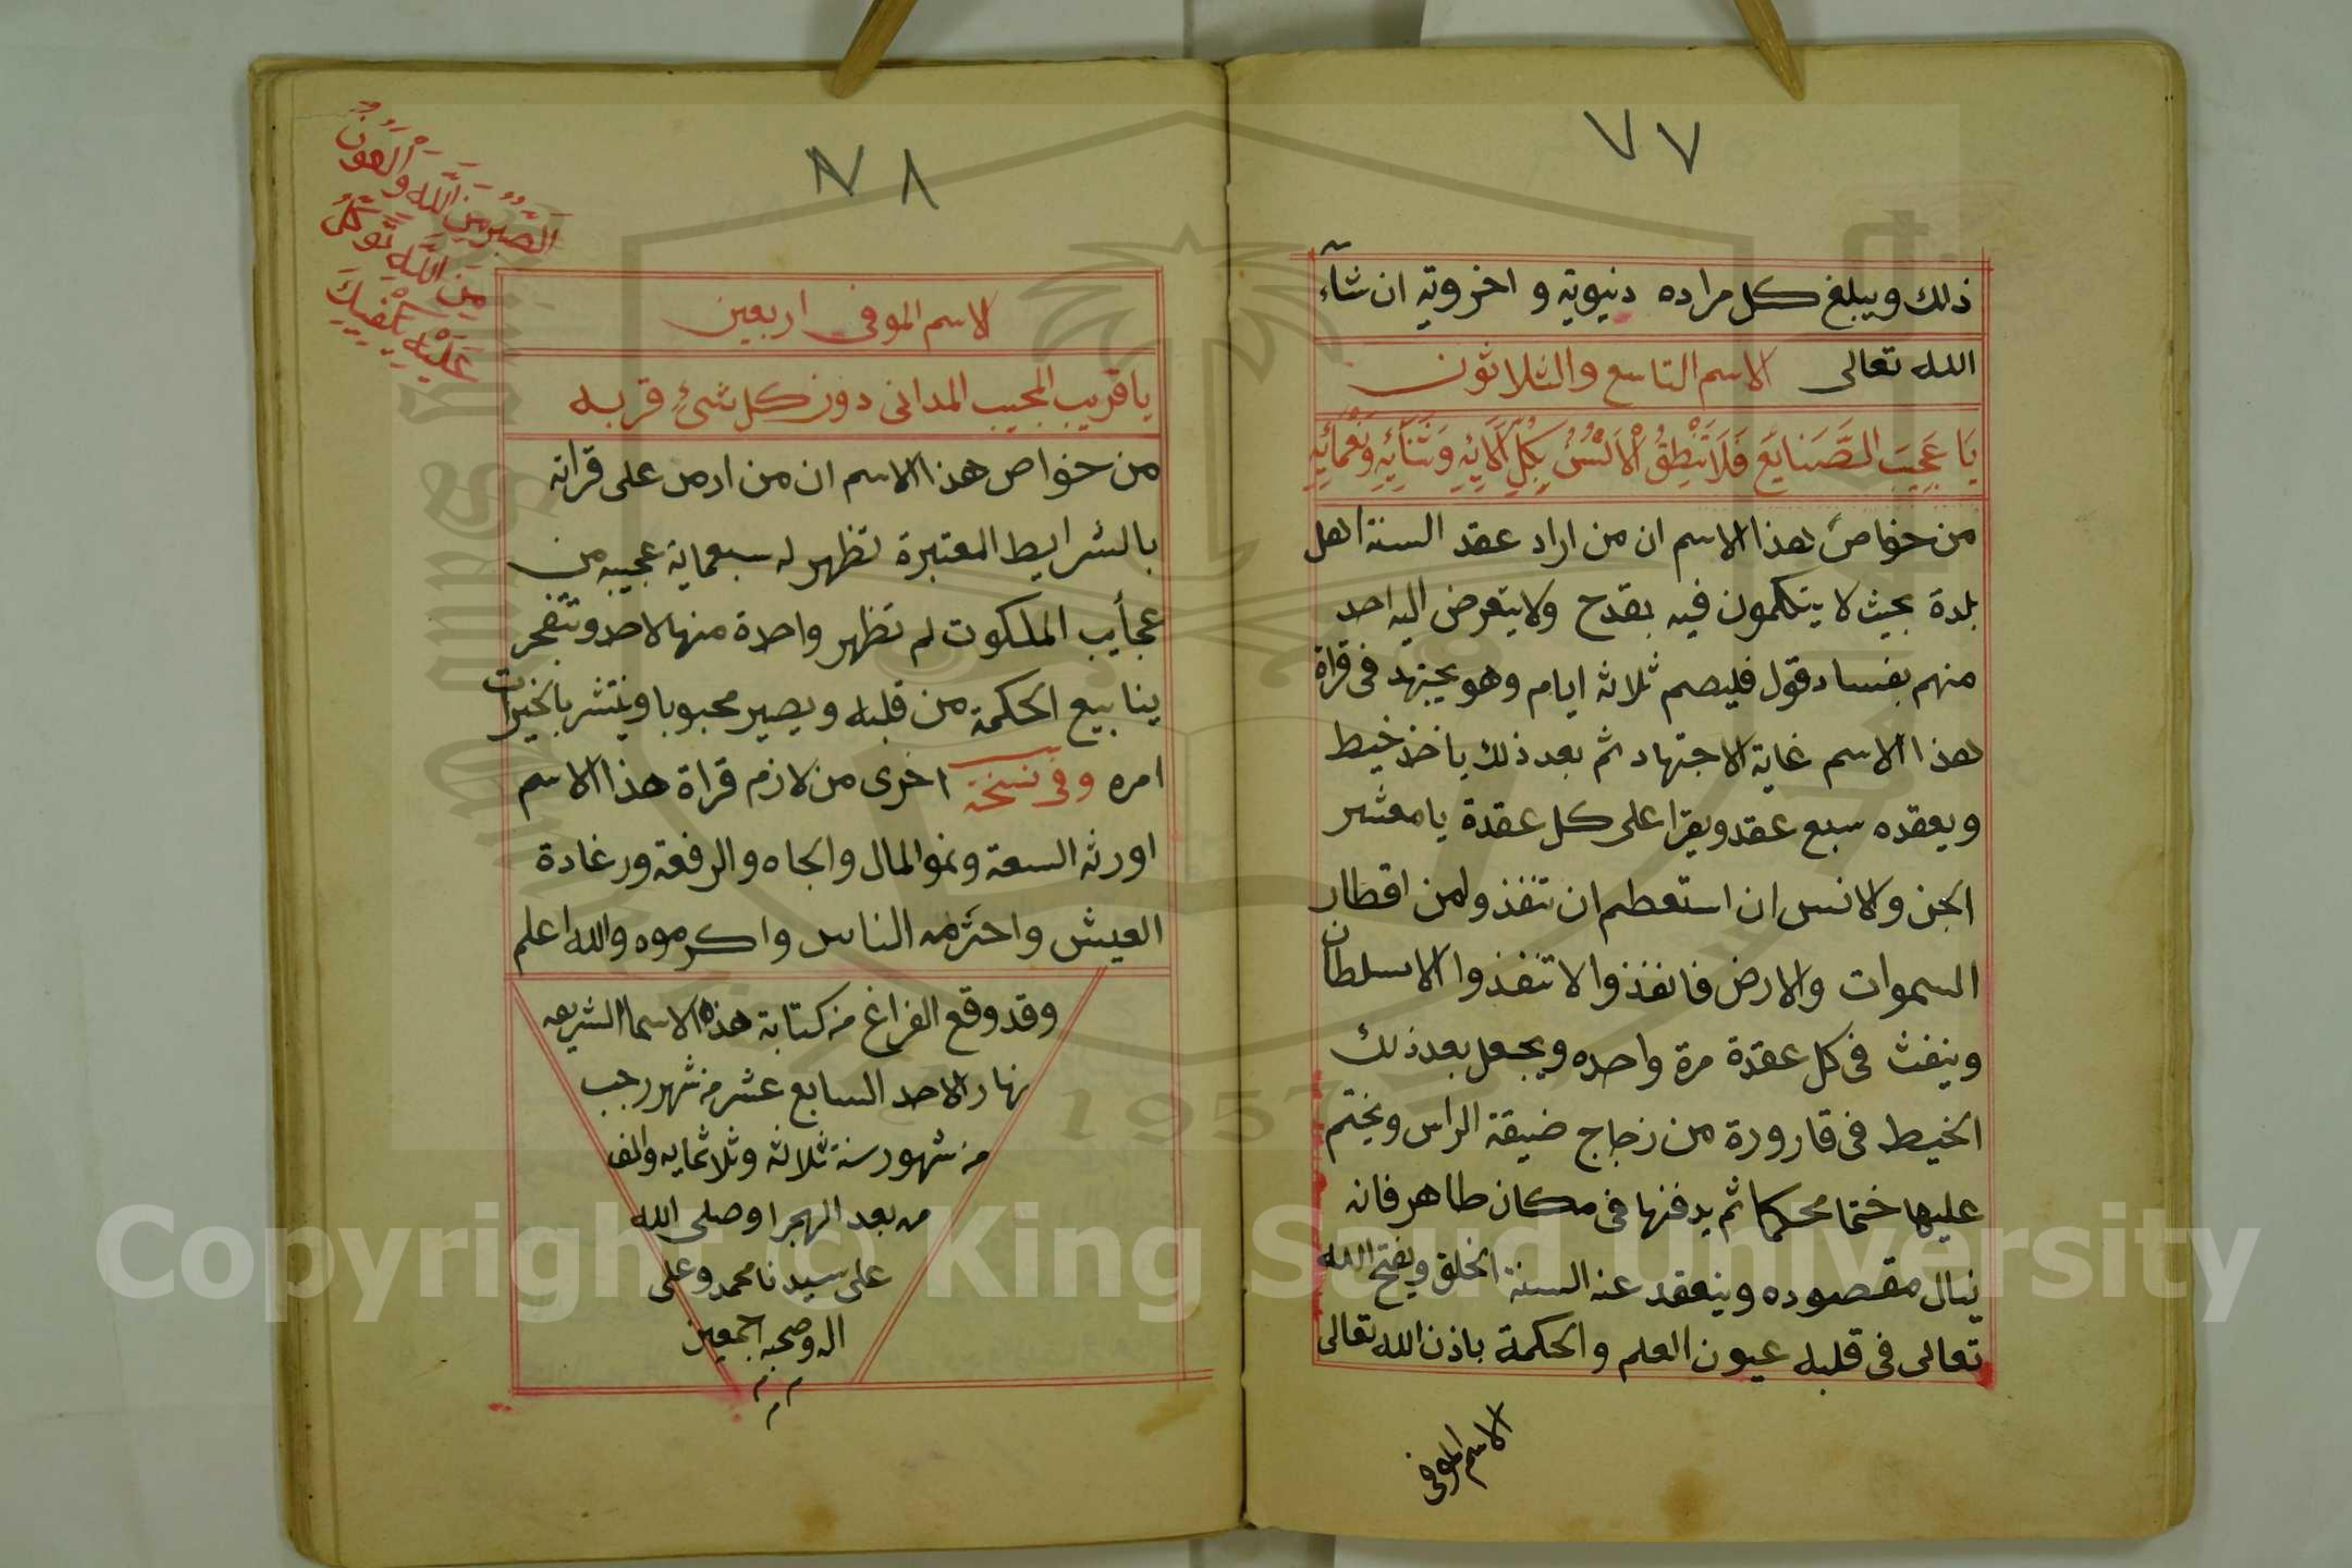 ٧٧
ذلك ويبلغ كل مراده دنيوية و اخروية ان شآء
الله تعالى الاسم التاسع والثلاثون
يَا عَجِيبَ الصَّنَايَعِ فَلَا تَنْطِقُ الْاَلْسُنُ بِكُلِّ اٰلَآئِهِ وَثَنَآئِهِ وَنَعْمَآئِهِ
من خواص هذا الاسم ان من اراد عقد السنة اهل
بلدة بحيث لا يتكلمون فيه بقدح ولا يتعرض اليه احد
منهم بفساد قول فليصم ثلاثة ايام وهو يجتهد فى قراة
هذا الاسم غاية الاجتهاد ثم بعد ذلك ياخذ خيط
ويعقده سبع عقد ويقرا على كل عقدة يا معشر
الجن والانس ان استعطم ان تنفذو لمن اقطار
السموات والارض فانفذوا لا تنفذوا الا سلطان
وينفث فى كل عقدة مرة واحده ويجعل بعد ذلك
الخيط فى قارورة من زجاج ضيقة الراس ويختم
عليها ختما محكما ثم يدفنها فى مكان طاهر فانه
ينال مقصوده وينعقد عنه السنة الخلق ويفتح الله
تعالى فى قلبه عيون العلم والحكمة باذن الله تعالى
الاسم الموفى
٧٨
اَلصَّبْرُ مِنَ اللّٰهِ وَالْعَوْنُ
مِنَ اللّٰهِ تَوَكَّلْ
عَلَيْهِ يَكْفِيكَ
الاسم الموفى اربعين
يا قريب المجيب المدانى دون كل شئ قربه
من خواص هذا الاسم ان من ادمن على قراته
بالشرايط المعتبرة تظهر له سبعماية عجيبه من
عجأيب الملكوت لم تظهر واحدة منها لاحد وتتفجر
ينابيع الحكمة من قلبه ويصير محبوبا وينتشر بالخيرات
امره وفى نسخة اخرى من لازم قراة هذا الاسم
اورثه السعة ونمو المال والجاه والرفعة ورغادة
العيش واحترمه الناس واكرموه والله اعلم
وقد وقع الفراغ من كتابة هذه الاسما الشريعه
نهار الاحد السابع عشر من شهر رجب
من شهور سنة ثلاثه وثلاثمايه والف
من بعد الهجرا وصلى الله
على سيدنا محمد وعلى
اله وصحبه اجمعين
Copyright © King Saud University
1957